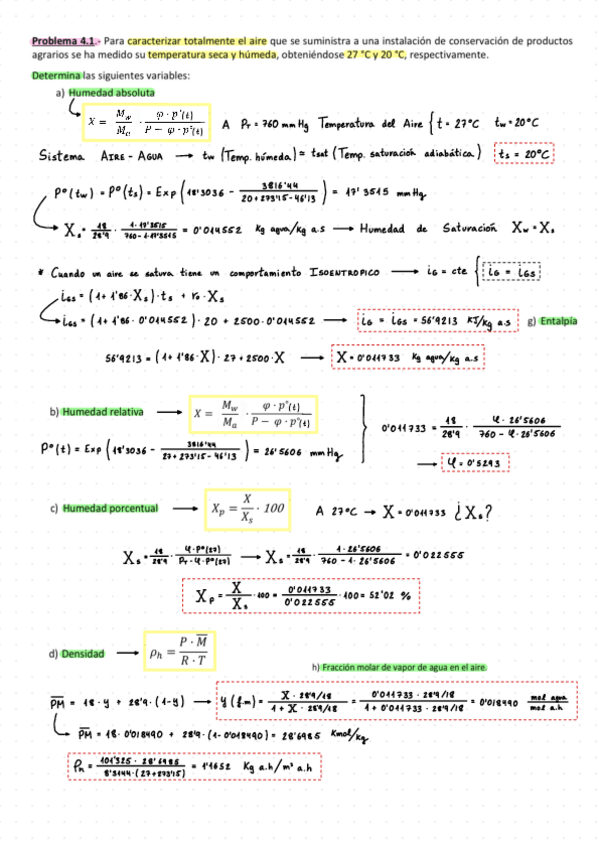 Problema 4.1.- Para caracterizar totalmente el aire que se suministra a una instalación de conservación de productos
agrarios se ha medido su temperatura seca y húmeda, obteniéndose 27 °C y 20 °C, respectivamente.
Determina las siguientes variables:
a) Humedad absoluta
X = M_w/M_a · φ·p°(t)/(P − φ·p°(t)) A P_T = 760 mm Hg Temperatura del Aire { t = 27°C t_w = 20°C
Sistema AIRE - AGUA → t_w (Temp. húmeda) = t_sat (Temp. saturación adiabática) t_s = 20°C
P°(t_w) = P°(t_s) = Exp (18'3036 − 3816'44/(20+273'15−46'13)) = 17'3515 mmHg
X_s = 18/28'9 · 1·17'3515/(760−1·17'3515) = 0'014552 Kg agua/Kg a.s → Humedad de Saturación X_w = X_s
* Cuando un aire se satura tiene un comportamiento ISOENTROPICO → i_G = cte { i_G = i_GS
i_GS = (1+ 1'86·X_s)·t_s + r_0·X_s
i_GS = (1+ 1'86·0'014552)·20 + 2500·0'014552 → i_G = i_GS = 56'9213 KJ/Kg a.s g) Entalpía
56'9213 = (1+ 1'86·X)·27+2500·X → X = 0'011733 Kg agua/Kg a.s
b) Humedad relativa → X = M_w/M_a · φ·p°(t)/(P − φ·p°(t)) } 0'011733 = 18/28'9 · φ·26'5606/(760 − φ·26'5606)
P°(t) = Exp (18'3036 − 3816'44/(27+273'15−46'13)) = 26'5606 mmHg
→ φ = 0'5293
c) Humedad porcentual → X_p = X/X_s · 100 A 27°C → X = 0'011733 ¿X_s?
X_s = 18/28'9 · φ·P°(27)/(P_T − φ·P°(27)) → X_s = 18/28'9 · 1·26'5606/(760 − 1·26'5606) = 0'022555
X_p = X/X_s · 100 = 0'011733/0'022555 · 100 = 52'02 %
d) Densidad → ρ_h = P·M̅/(R·T)
h) Fracción molar de vapor de agua en el aire.
P̅M̅ = 18·y + 28'9·(1−y) → y (f.m) = X·28'9/18/(1 + X·28'9/18) = 0'011733·28'9/18/(1 + 0'011733·28'9/18) = 0'018490 mol agua/mol a.h
P̅M̅ = 18·0'018490 + 28'9·(1−0'018490) = 28'6985 Kmol/Kg
ρ_h = 101'325·28'6985/(8'3144·(27+273'15)) = 1'1652 Kg a.h/m³ a.h